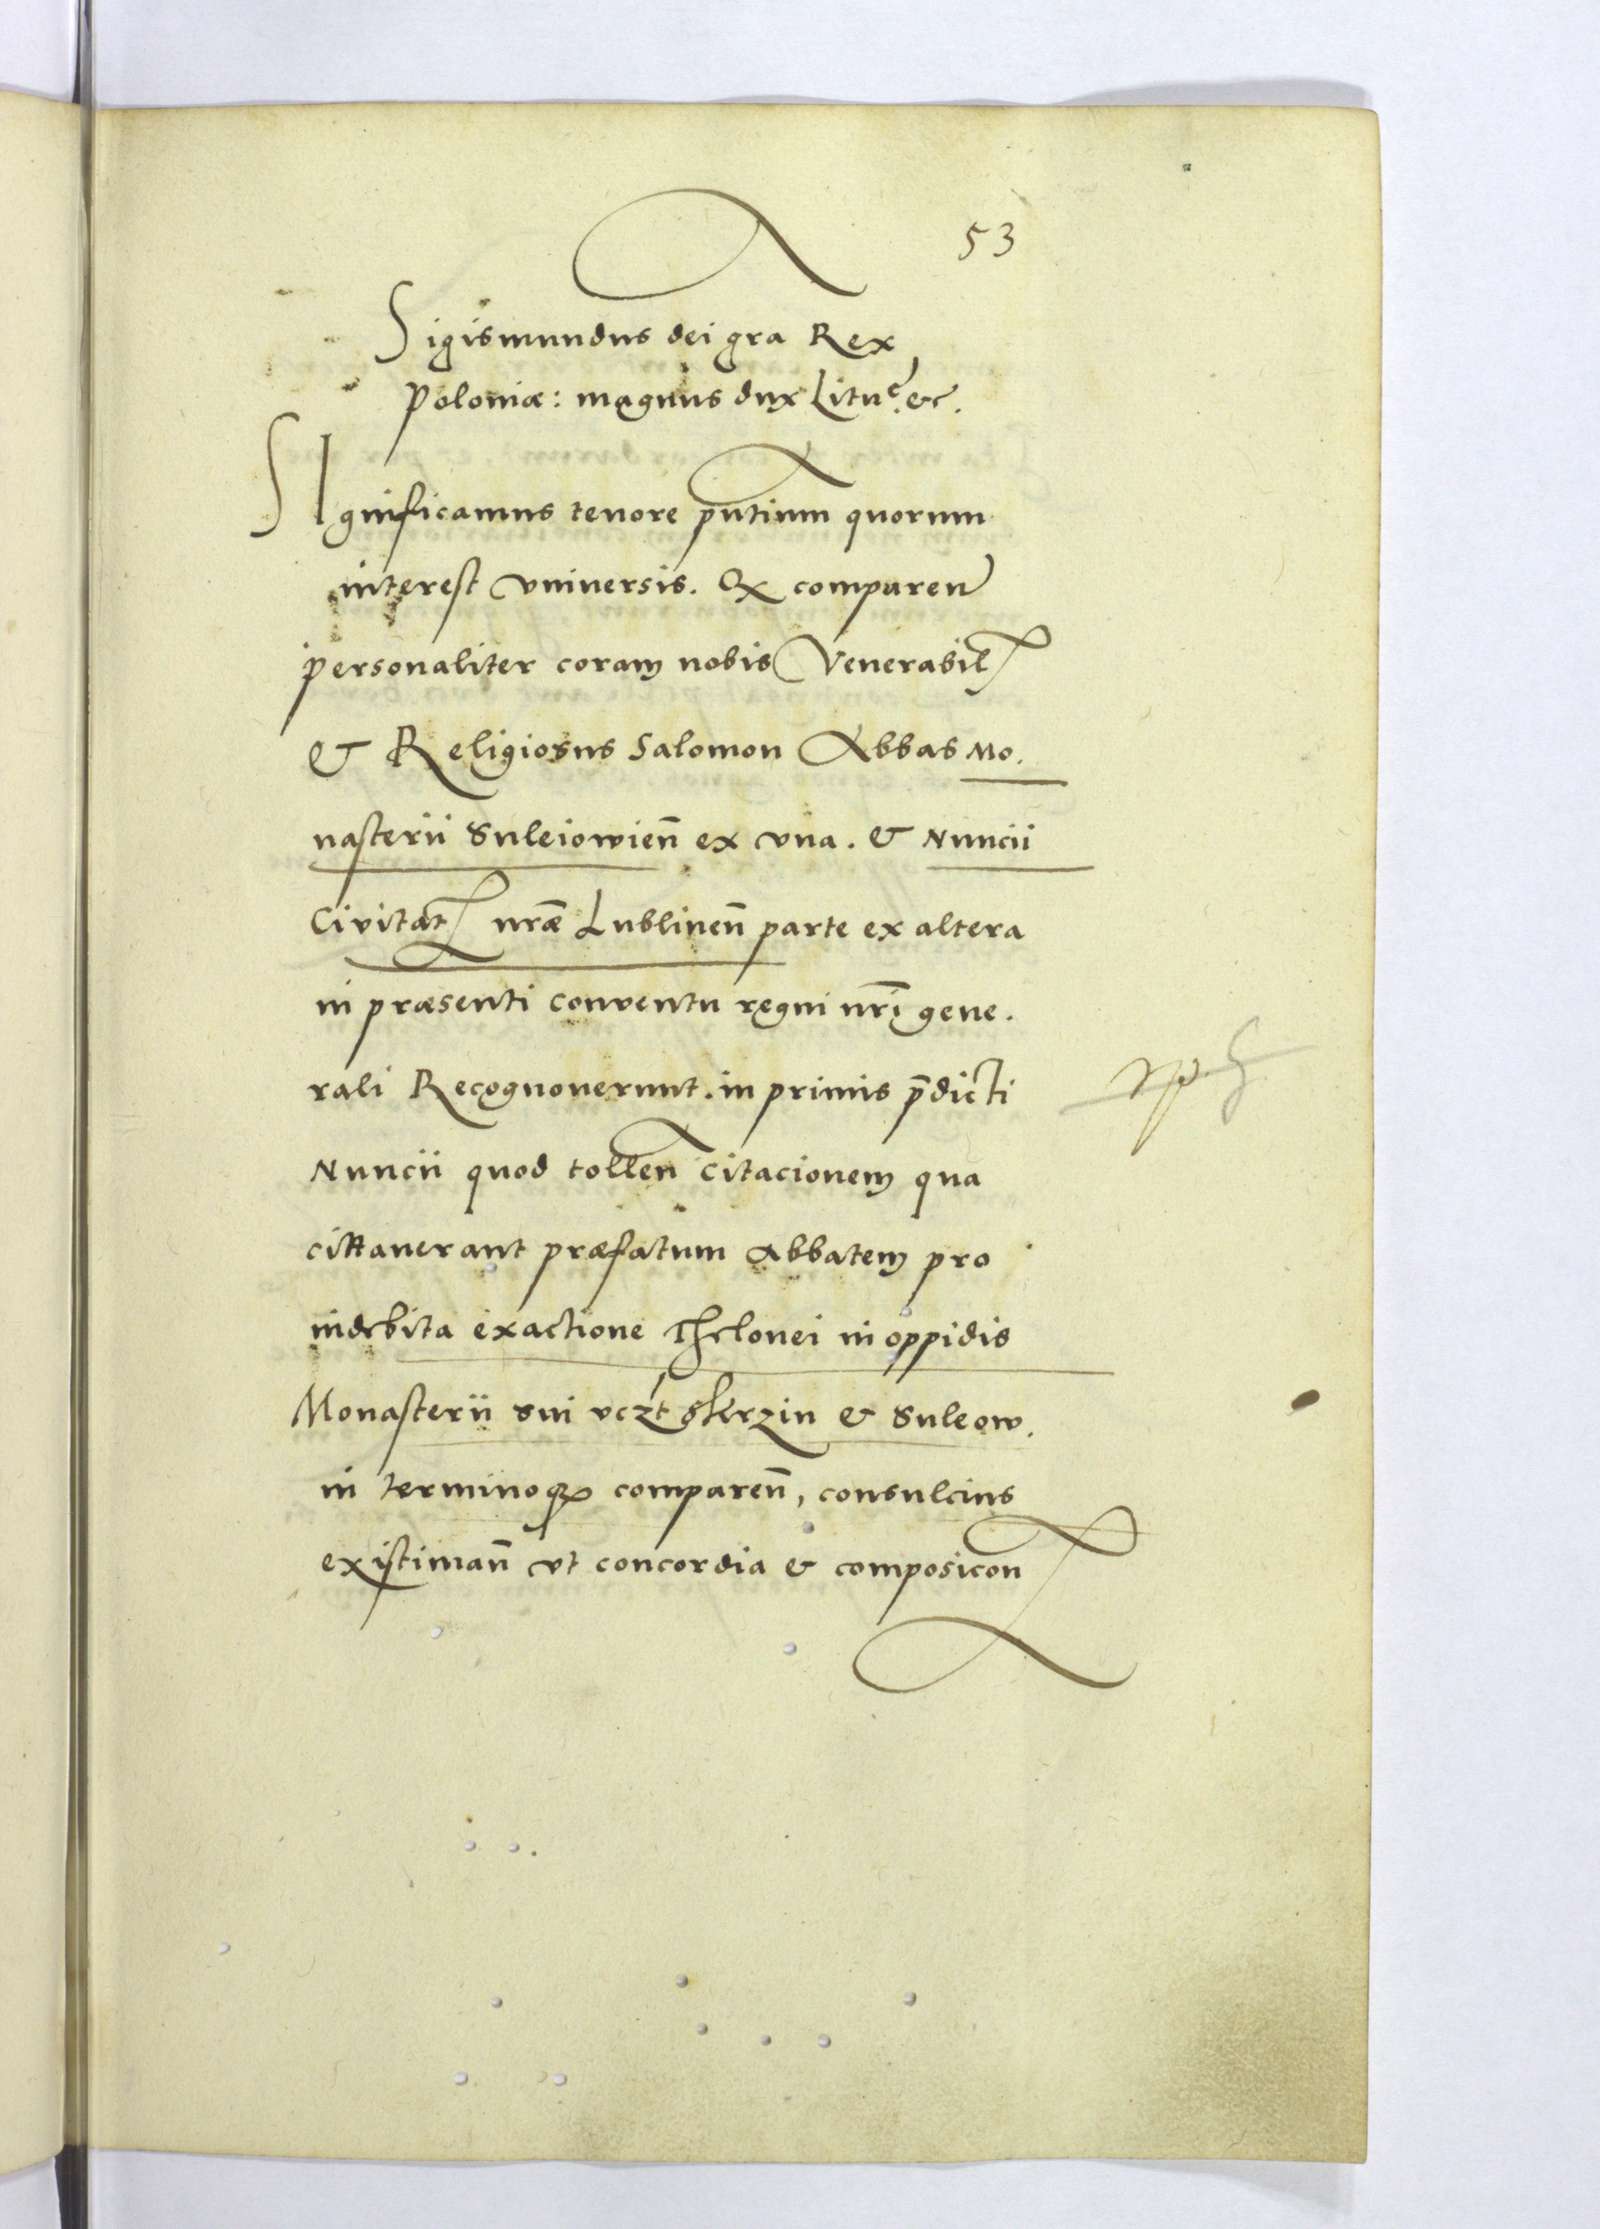 53
Sigismundus dei gra Rex
Poloniæ: magnus dux Litu⁹. &c.
SIgnificamus tenore pntium quorum
interest vniuersis. Qƺ comparen
personaliter coram nobis Venerabil
& Religiosus Salomon Abbas Mo.
nasterii Suleiowien̄ ex vna. & Nuncii
Civitat nr̄æ Lublinen̄ parte ex altera
in præsenti conventu regni nr̄i gene.
rali Recognouerunt. in primis p̄dicti
Nuncii quod tollen citacionem qua
cittauerant præfatum Abbatem pro
indebita exactione Thelonei in oppidis
Monasterii sui vczt Skrzin & Suleow.
in terminoqƺ comparen̄, consulcius
existiman̄ vt concordia & composicon